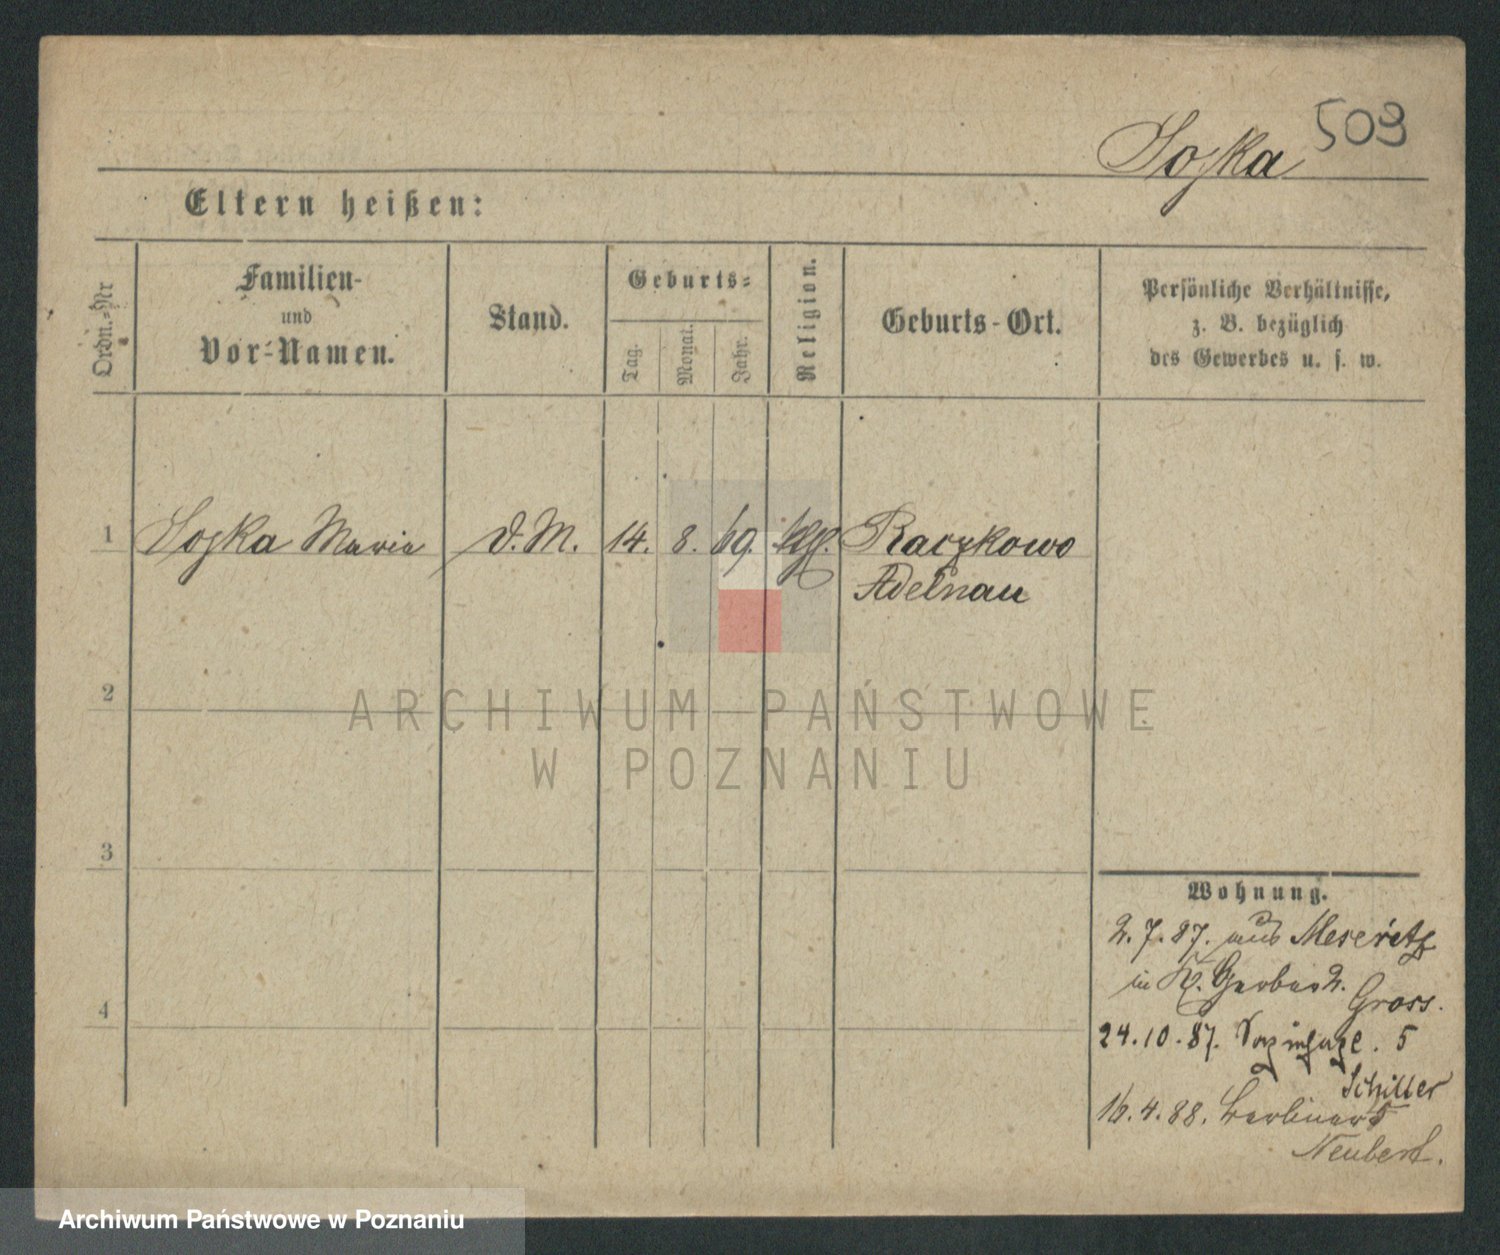 Soska 509
Eltern heißen:
Ordn.-Nr
Familien-
und
Vor-Namen.
Stand.
Geburts-
Tag.
Monat.
Jahr.
Religion.
Geburts-Ort.
Persönliche Verhältnisse,
z. B. bezüglich
des Gewerbes u. s. w.
1 Soska Maria d. M. 14. 8. 69. Raczkowo
Adelnau
2
3
4
Wohnung.
2.7.87. aus Meseritz
in K. Gerber 2.
Gross.
24.10.87. 5
Schiller
16.4.88. Berliner 5
Neubert.
ARCHIWUM PAŃSTWOWE
W POZNANIU
Archiwum Państwowe w Poznaniu